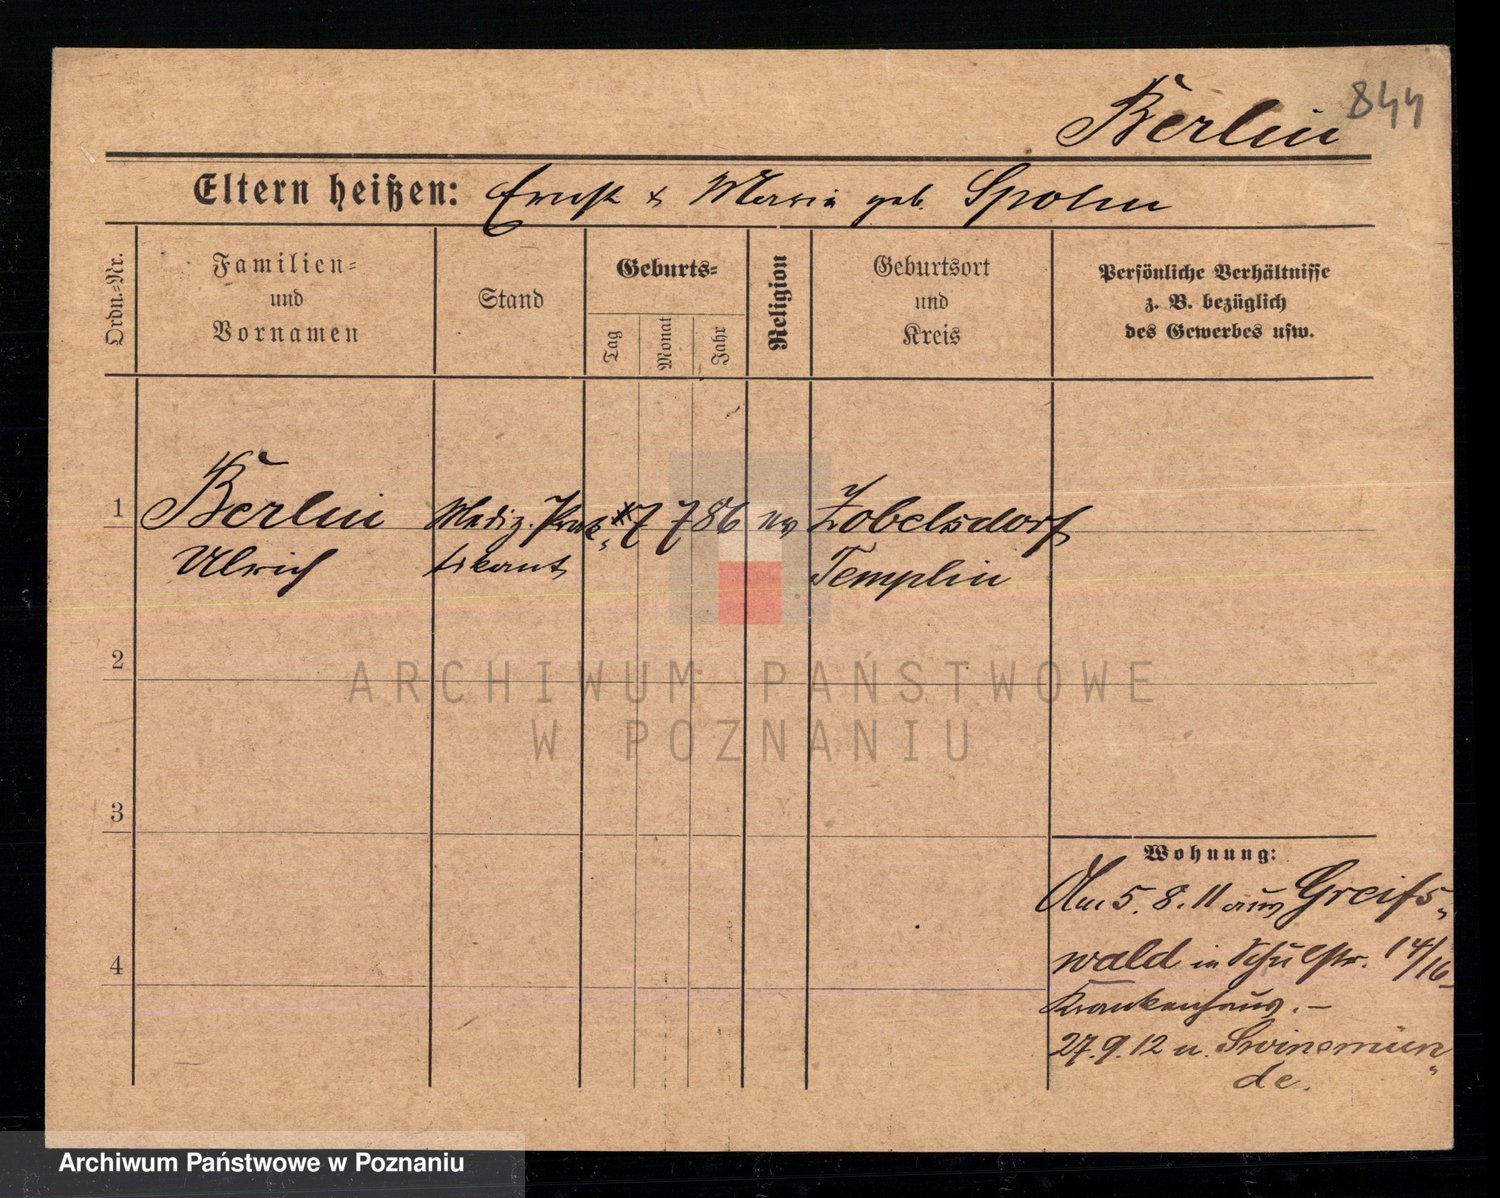 Berlin 844
Eltern heißen: Ernst & Maria geb. Spohn
Ordn.-Nr.
Familien-
und
Vornamen
Stand
Geburts-
Tag
Monat
Jahr
Religion
Geburtsort
und
Kreis
Persönliche Verhältnisse
z. B. bezüglich
des Gewerbes usw.
1 Berlin Mediz. Prak- 7 7 86 ev Zobelsdorf
Ulrich tikant Templin
2
ARCHIWUM PAŃSTWOWE
W POZNANIU
3
Wohnung:
Am 5. 8. 11 aus Greifs-
4 wald in Schulstr. 14/16
Krankenhaus. –
27.9.12 n. Swinemün-
de.
Archiwum Państwowe w Poznaniu